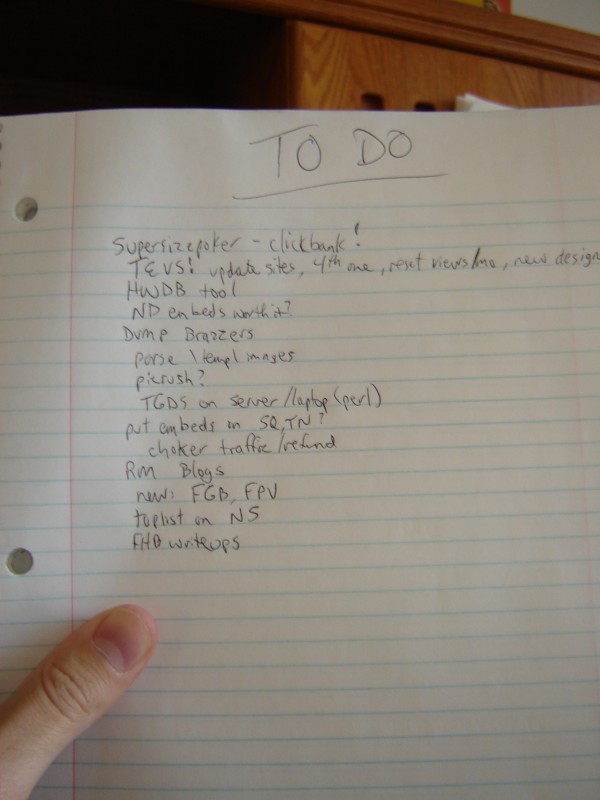 TO DO
Supersizepoker - clickbank!
TEVS! update sites, 4th one, reset views/mo, new design
HWDB tool
ND embeds worth it?
Dump Brazzers
parse \templ images
picrush?
TGDS on server/laptop (perl)
put embeds on SQ, TN?
choker traffic/refund
Rm Blogs
new: FGB, FPV
toplist on NS
FHB writeups